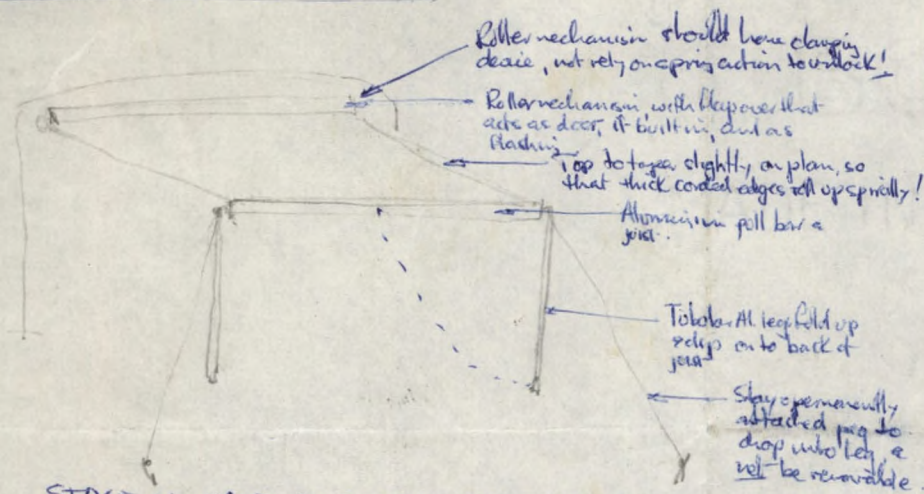 Roller mechanism should have clamping
device, not rely on spring action to unlock!
Roller mechanism, with flap over that
acts as door, if built in, and as
flashing
Top to taper slightly, on plan, so
that thick corded edges roll up spirally!
Aluminium pull bar &
joist.
Tubular Al. legs fold up
& clip on to back of
joist
Stay & permanently
attached peg to
drop into leg, &
not be removable